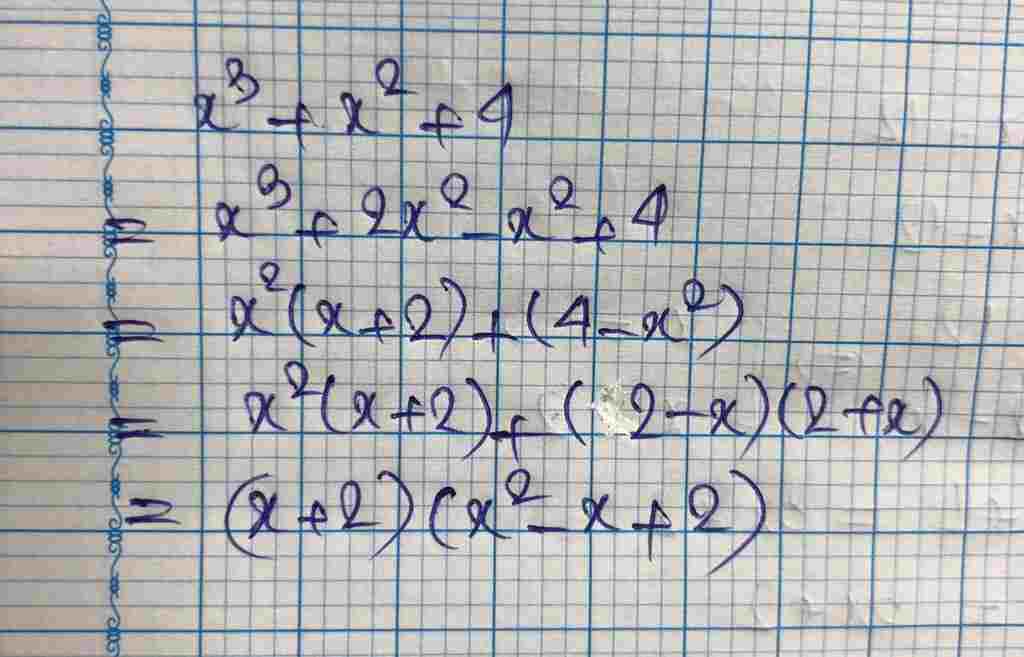 x³ + x² + 4
= x³ + 2x² - x² + 4
= x²(x+2) + (4-x²)
= x²(x+2) + (2-x)(2+x)
= (x+2)(x²-x+2)